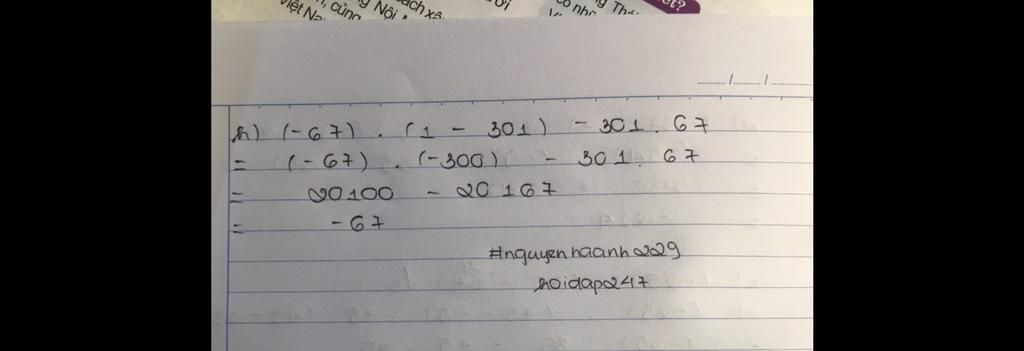 Việt Na
n, củng
g Nội
ách xã
ơi
có nh
g Th
ết?
....../....../......
h) (-67) . (1 - 301) - 301 . 67
= (-67) . (-300) - 301 . 67
= 20100 - 20167
= -67
#nguyenhaanh229
hoidap247